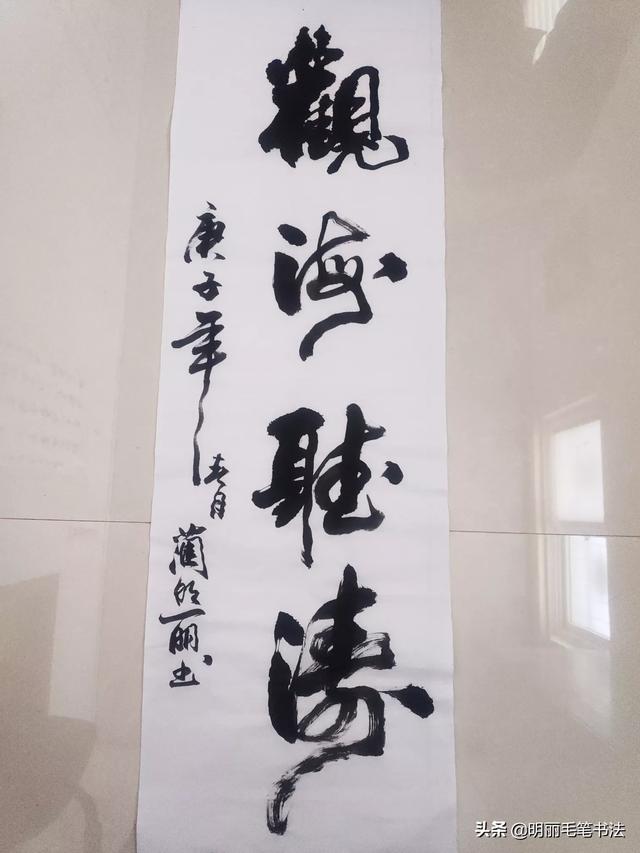 觀海聽濤
庚子年春月蔺明丽书
头条 @明丽毛笔书法